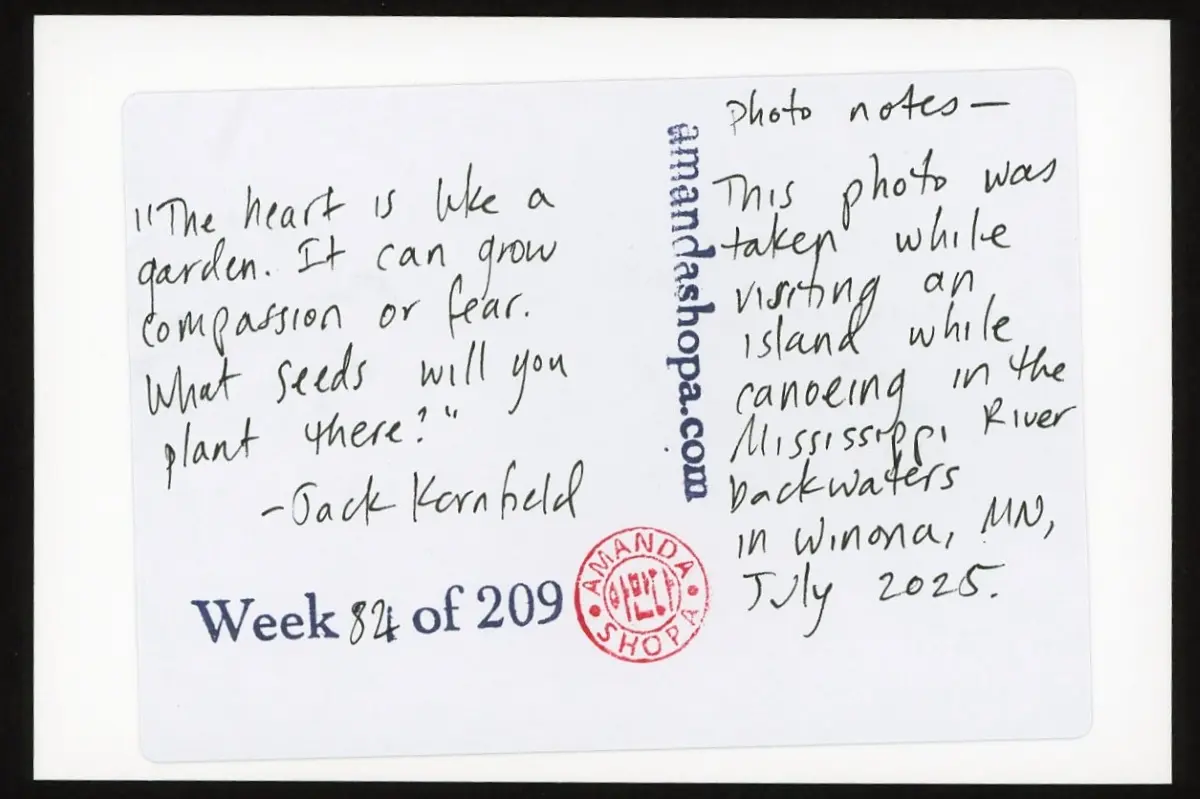 "The heart is like a
garden. It can grow
compassion or fear.
What seeds will you
plant there?"
-Jack Kornfield
Week 84 of 209
AMANDA
SHOPA
amandashopa.com
photo notes—
This photo was
taken while
visiting an
island while
canoeing in the
Mississippi River
backwaters
in Winona, MN,
July 2025.